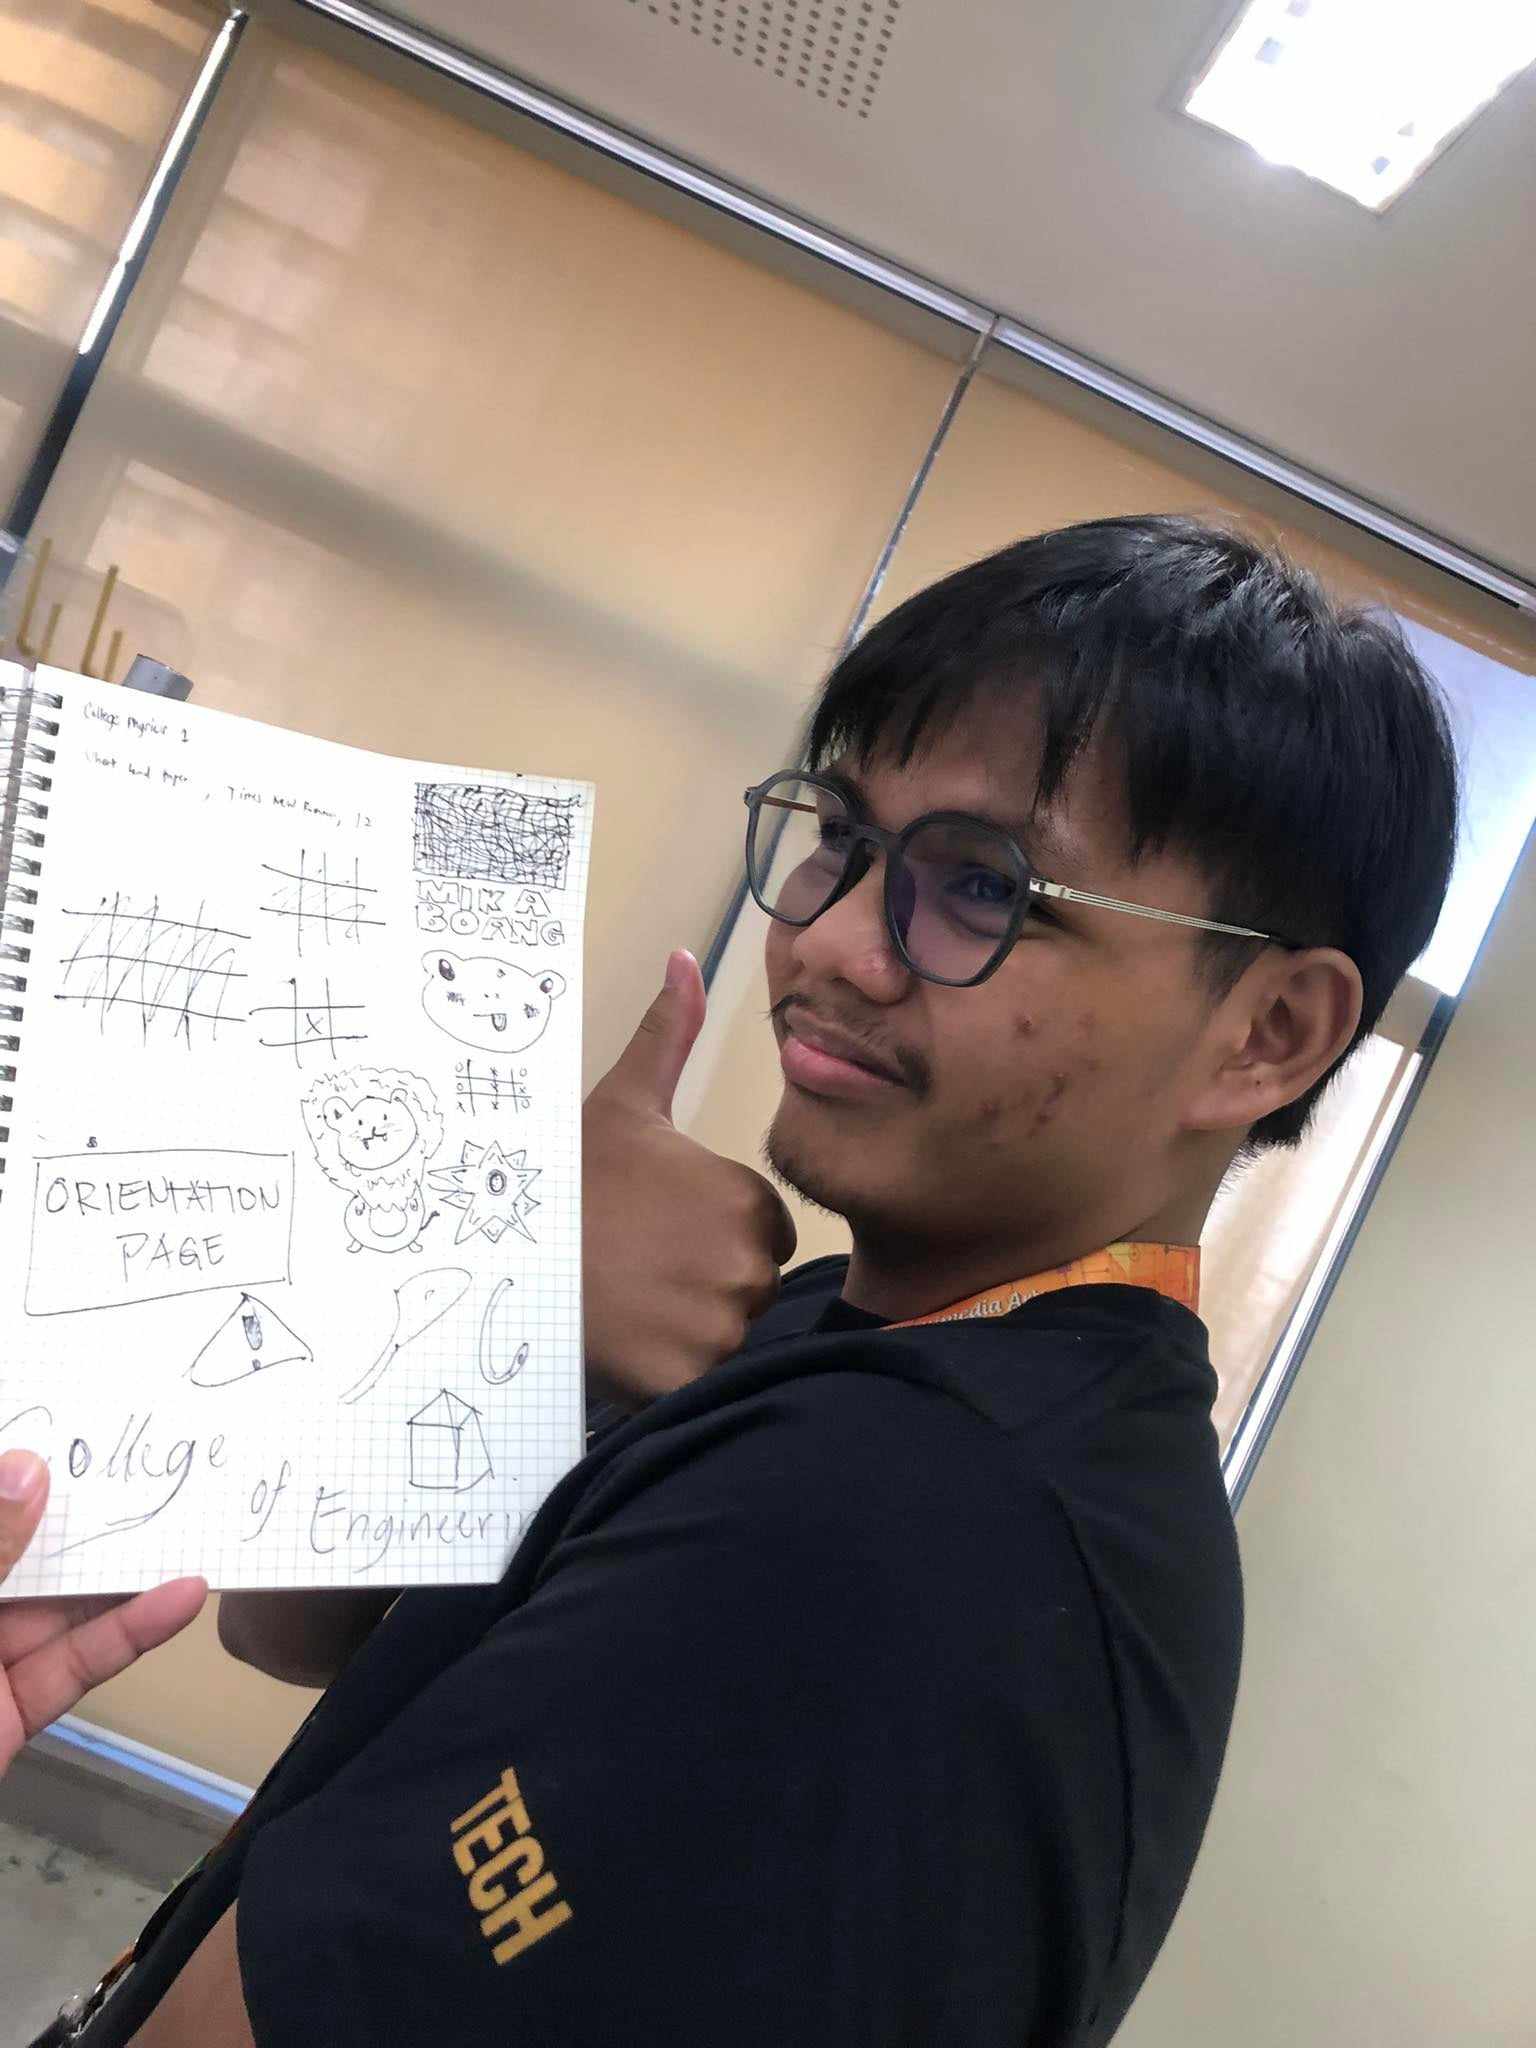 College Physics 1
Short bond paper, Times New Roman, 12
MIKA
BOANG
X
ORIENTATION
PAGE
College
of Engineerin
media Art
TECH